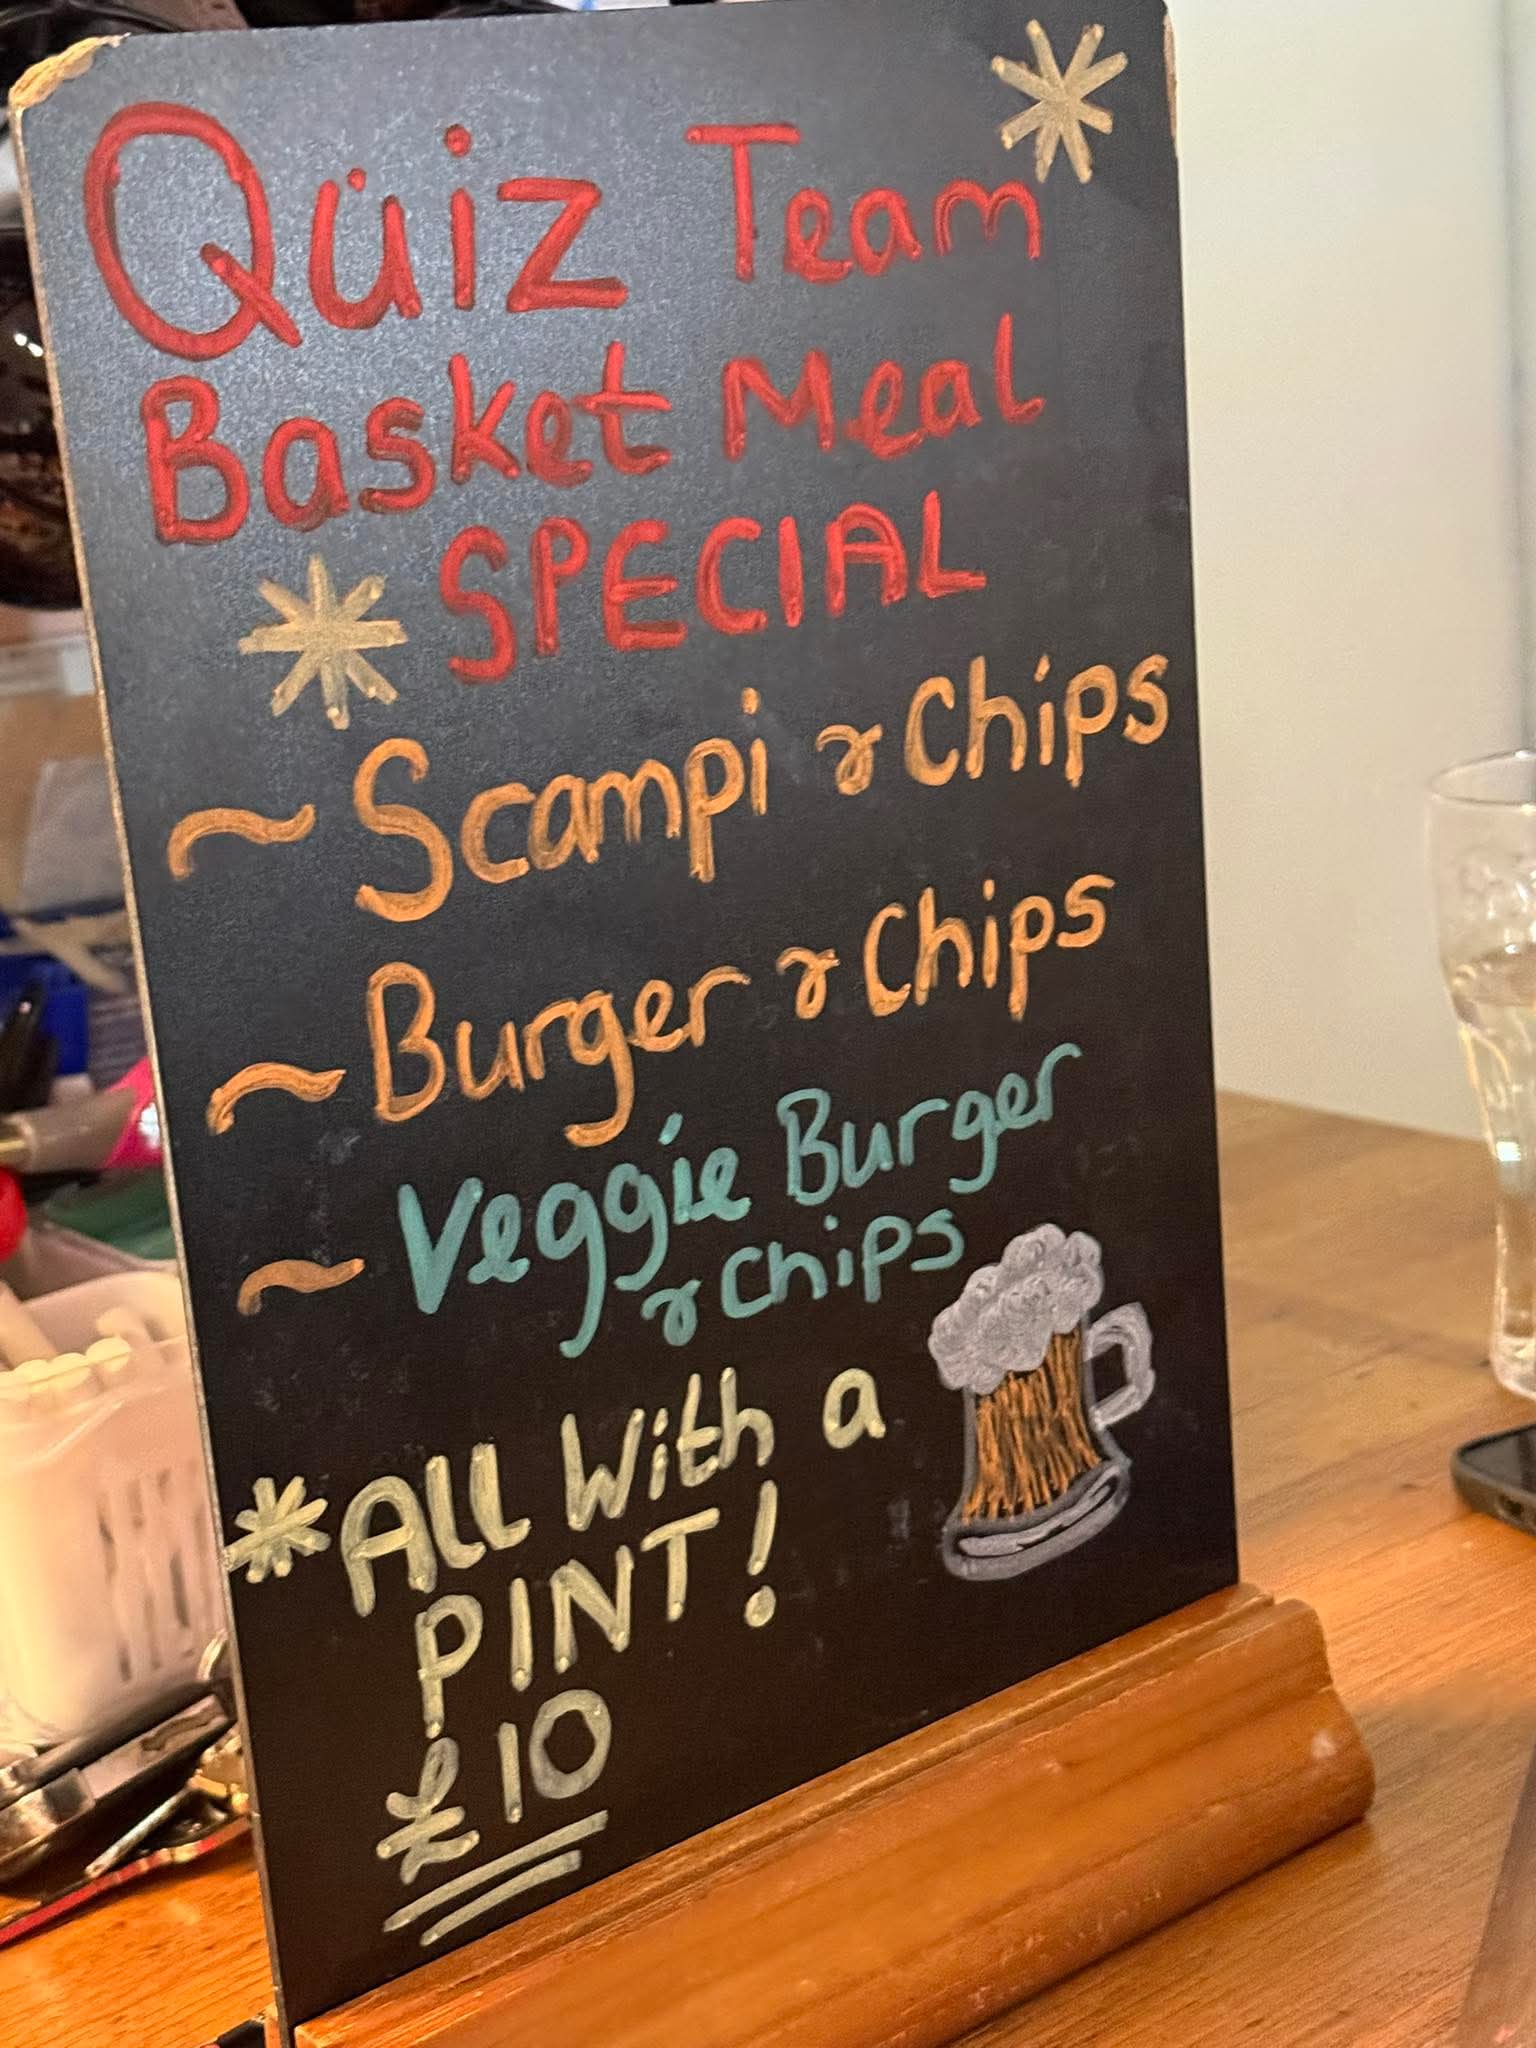 Quiz Team
Basket Meal
SPECIAL
~ Scampi & Chips
~ Burger & Chips
~ Veggie Burger
& Chips
* All With a
PINT!
£10